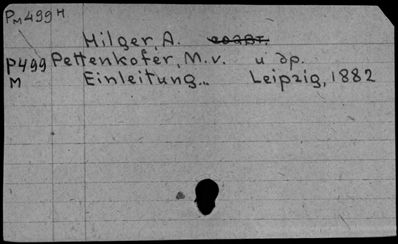 PM499H
Hilger, A.
P499 Pettenkofer, M.v. и др.
M Einleitung... Leipzig, 1882